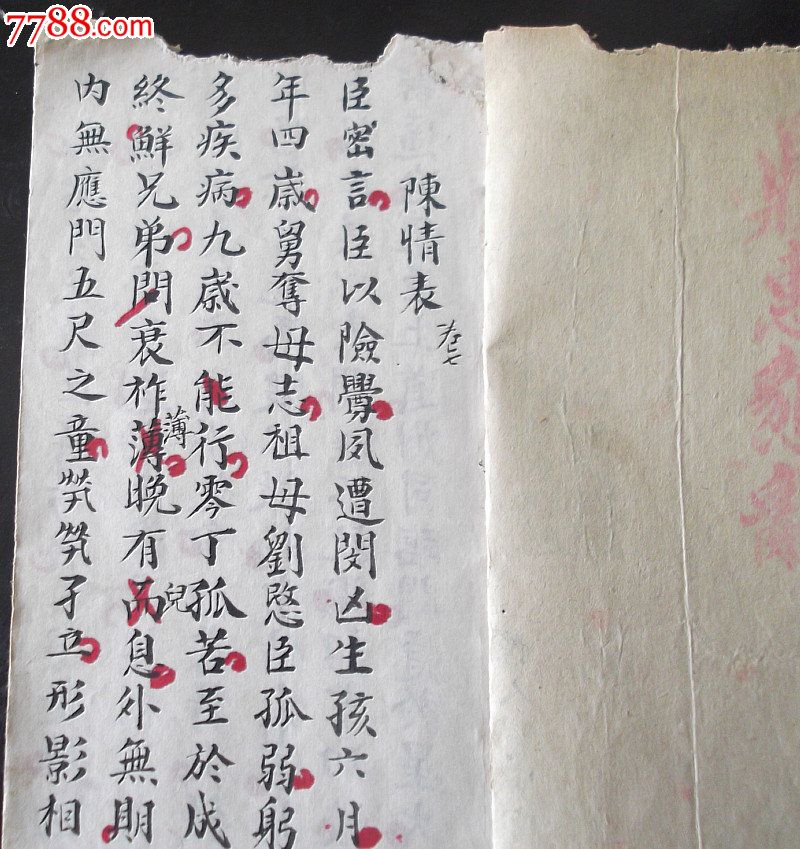 7788.com
陳情表
卷七
臣密言臣以險釁夙遭閔凶生孩六月
年四歲舅奪母志祖母劉愍臣孤弱躬
多疾病九歲不能行零丁孤苦至於成
終鮮兄弟問衰祚薄晚有而息外無期
薄
兒
內無應門五尺之童煢煢孑立形影相